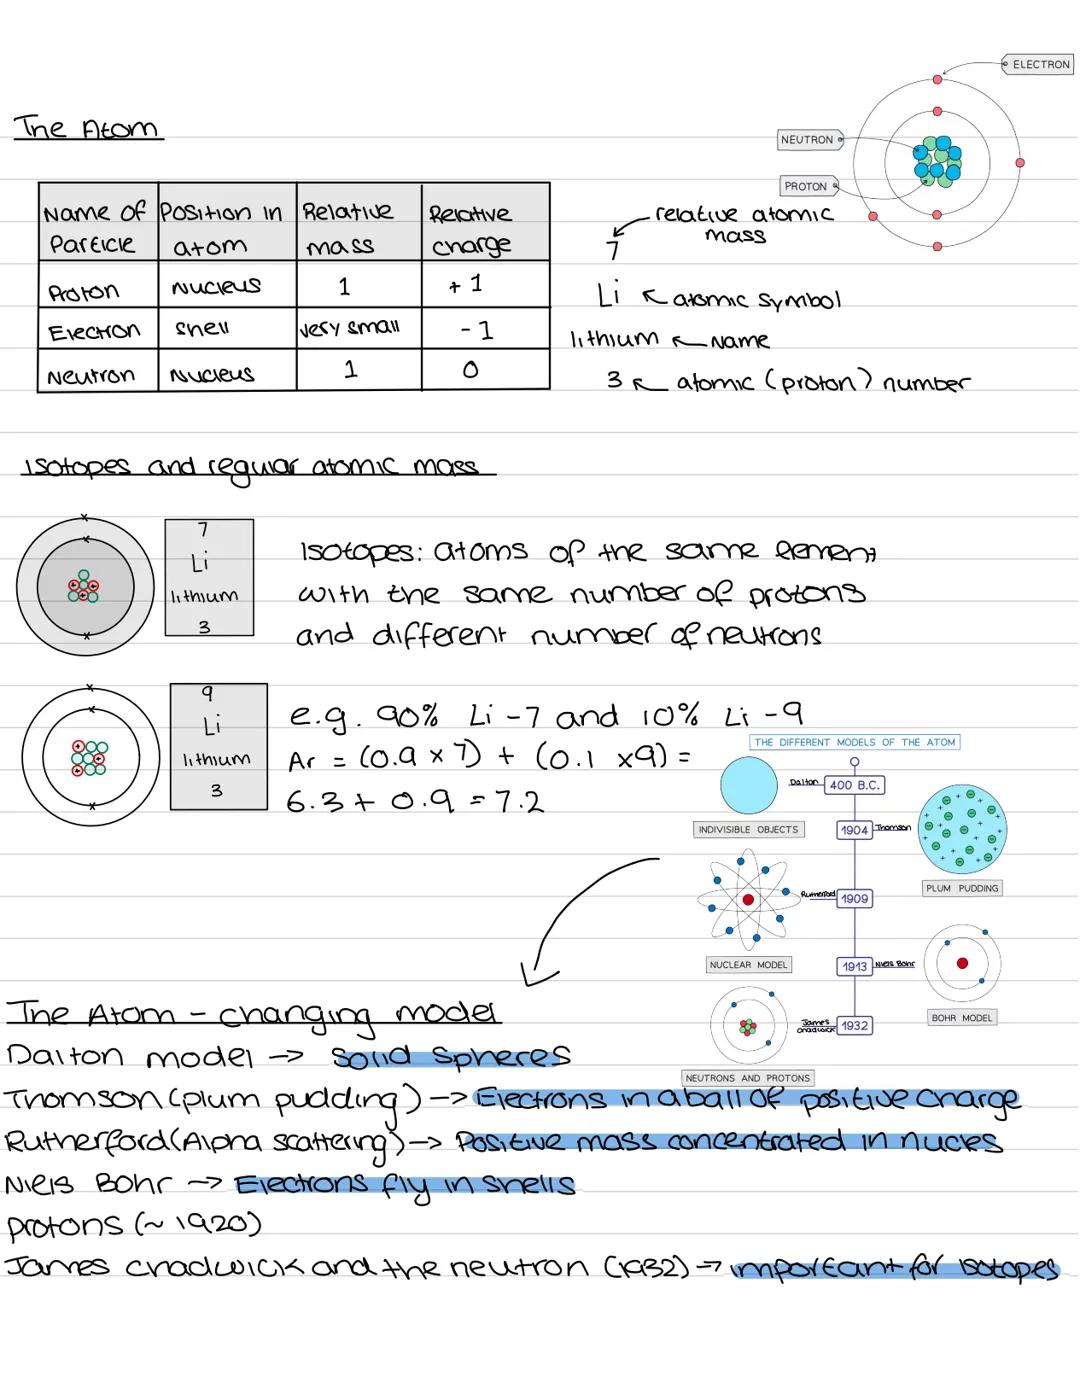 ELECTRON
The Atom
NEUTRON
PROTON
Name of Particle
Position in atom
Relative mass
Relative charge
Proton
Nucleus
1
+1
Electron
shell
very small
-1
Neutron
Nucleus
1
0
relative atomic
mass
7
Li
atomic symbol
lithium
Name
3
atomic (proton) number
Isotopes and regular atomic mass
7
Li
lithium
3
Isotopes: atoms of the same element
with the same number of protons
and different number of neutrons
9
Li
lithium
3
e.g. 90% Li-7 and 10% Li-9
Ar = (0.9 x 7) + (0.1 x9) =
6.3 + 0.9 = 7.2
THE DIFFERENT MODELS OF THE ATOM
Dalton
400 B.C.
INDIVISIBLE OBJECTS
1904
Thomson
PLUM PUDDING
Rutherford
1909
NUCLEAR MODEL
1913
Niels Bohr
BOHR MODEL
James
chadwick
1932
NEUTRONS AND PROTONS
The Atom - changing model
Dalton model -> Solid Spheres
Thomson (plum pudding) -> Electrons in a ball of positive charge
Rutherford (Alpha scattering) -> Positive mass concentrated in nucles
Niels Bohr -> Electrons fly in shells
protons (~1920)
James chadwick and the neutron (1932) -> important for isotopes